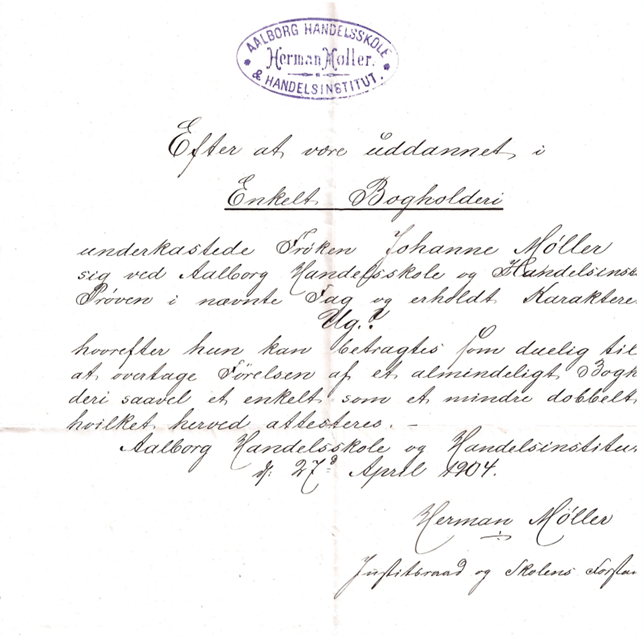 AALBORG HANDELSSKOLE
Herman Møller.
& HANDELSINSTITUT.
Efter at være uddannet i
Enkelt Bogholderi
underkastede Frøken Johanne Møller
sig ved Aalborg Handelsskole og Handelsins
Prøven i nævnte Fag og erholdt Karaktere
Ug.
hvorefter hun kan betragtes som duelig til
at overtage Førelsen af et almindeligt Bogh
deri saavel et enkelt som et mindre dobbelt
hvilket herved attesteres. –
Aalborg Handelsskole og Handelsinstitu
d. 27d April 1904.
Herman Møller
Justitsraad og Skolens Forsta